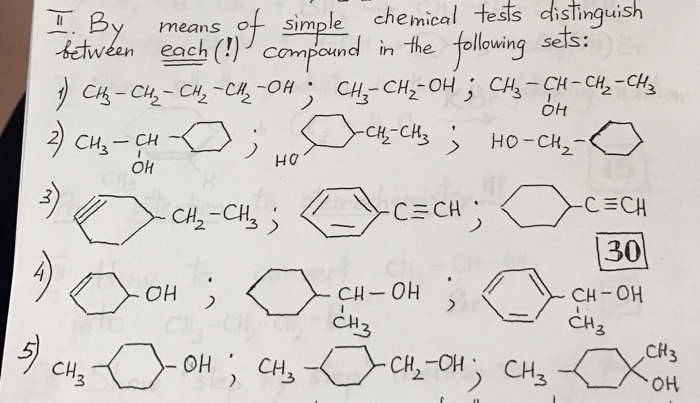 II. By means of simple chemical tests distinguish
between each (!) compound in the following sets:
1) CH₃-CH₂-CH₂-CH₂-OH, CH₃-CH₂-OH; CH₃-CH-CH₂-CH₃
OH
2) CH₃-CH- ; -CH₂-CH₃ ; HO-CH₂-
OH HO
3) -CH₂-CH₃; -C≡CH; -C≡CH
30
4) -OH ; -CH-OH ; -CH-OH
CH₃ CH₃
5) CH₃- -OH; CH₃- -CH₂-OH; CH₃- CH₃
OH